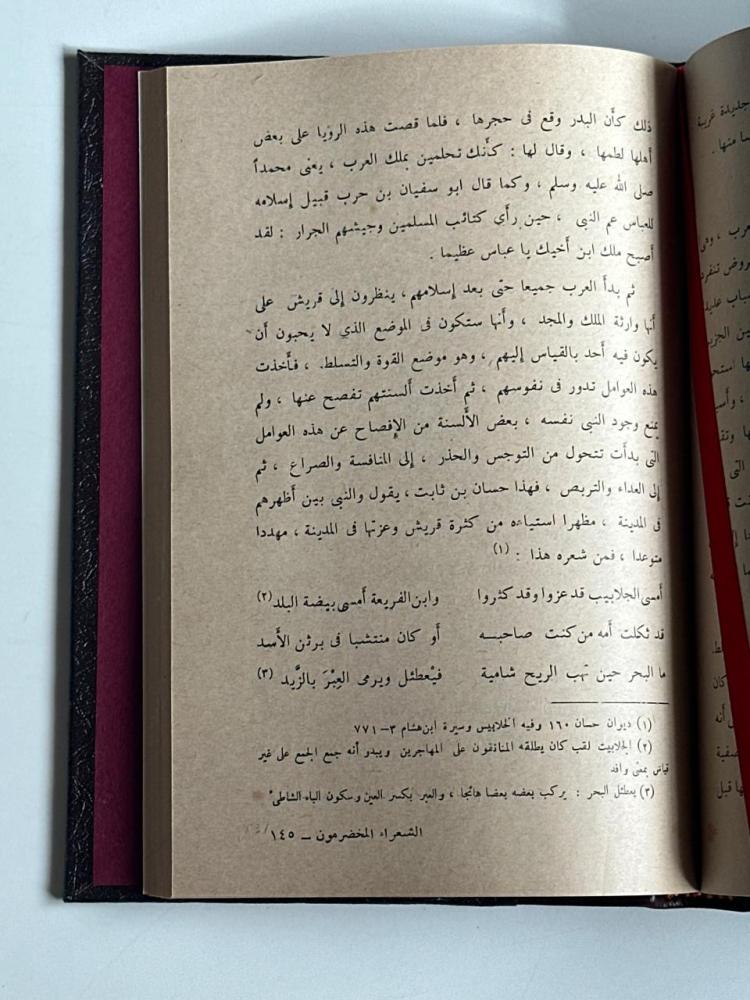 ذلك كأن البدر وقع فى حجرها ، فلما قصت هذه الرؤيا على بعض
أهلها لطمها ، وقال لها : كأنك تحلمين بملك العرب ، يعنى محمداً
صلى الله عليه وسلم ، وكما قال ابو سفيان بن حرب قبيل إسلامه
للعباس عم النبى ، حين رأى كتائب المسلمين وجيشهم الجرار : لقد
أصبح ملك ابن أخيك يا عباس عظيما .
ثم بدأ العرب جميعا حتى بعد إسلامهم ، ينظرون إلى قريش على
أنها وارثة الملك والمجد ، وأنها ستكون فى الموضع الذي لا يحبون أن
يكون فيه أحد بالقياس إليهم ، وهو موضع القوة والتسلط . فأخذت
هذه العوامل تدور فى نفوسهم ، ثم أخذت ألسنتهم تفصح عنها ، ولم
يمنع وجود النبى نفسه ، بعض الألسنة من الإفصاح عن هذه العوامل
التى بدأت تتحول من التوجس والحذر ، إلى المنافسة والصراع ، ثم
إلى العداء والتربص ، فهذا حسان بن ثابت ، يقول والنبى بين أظهرهم
فى المدينة ، مظهرا استياءه من كثرة قريش وعزتها فى المدينة ، مهددا
متوعدا ، فمن شعره هذا : (١)
أمسى الجلابيب قد عزوا وقد كثروا وابن الفريعة أمسى بيضة البلد (٢)
قد ثكلت أمه من كنت صاحبه أو كان منتشبا فى برثن الأسد
ما البحر حين تهب الريح شامية فيْعطئل ويرمى العِبْرَ بالزَّبد (٣)
(١) ديوان حسان ١٦٠ وفيه الخلابيس وسيرة ابن هشام ٣ – ٧٧١
(٢) الجلابيب لقب كان يطلقه المنافقون على المهاجرين ويبدو أنه جمع الجمع على غير
قياس بمعنى وافد
(٣) يعطئل البحر : يركب بعضه بعضا هائجا ، والعبر بكسر العين وسكون الباء الشاطئ
الشعراء المخضرمون – ١٤٥
جديدة غريبة
منها .